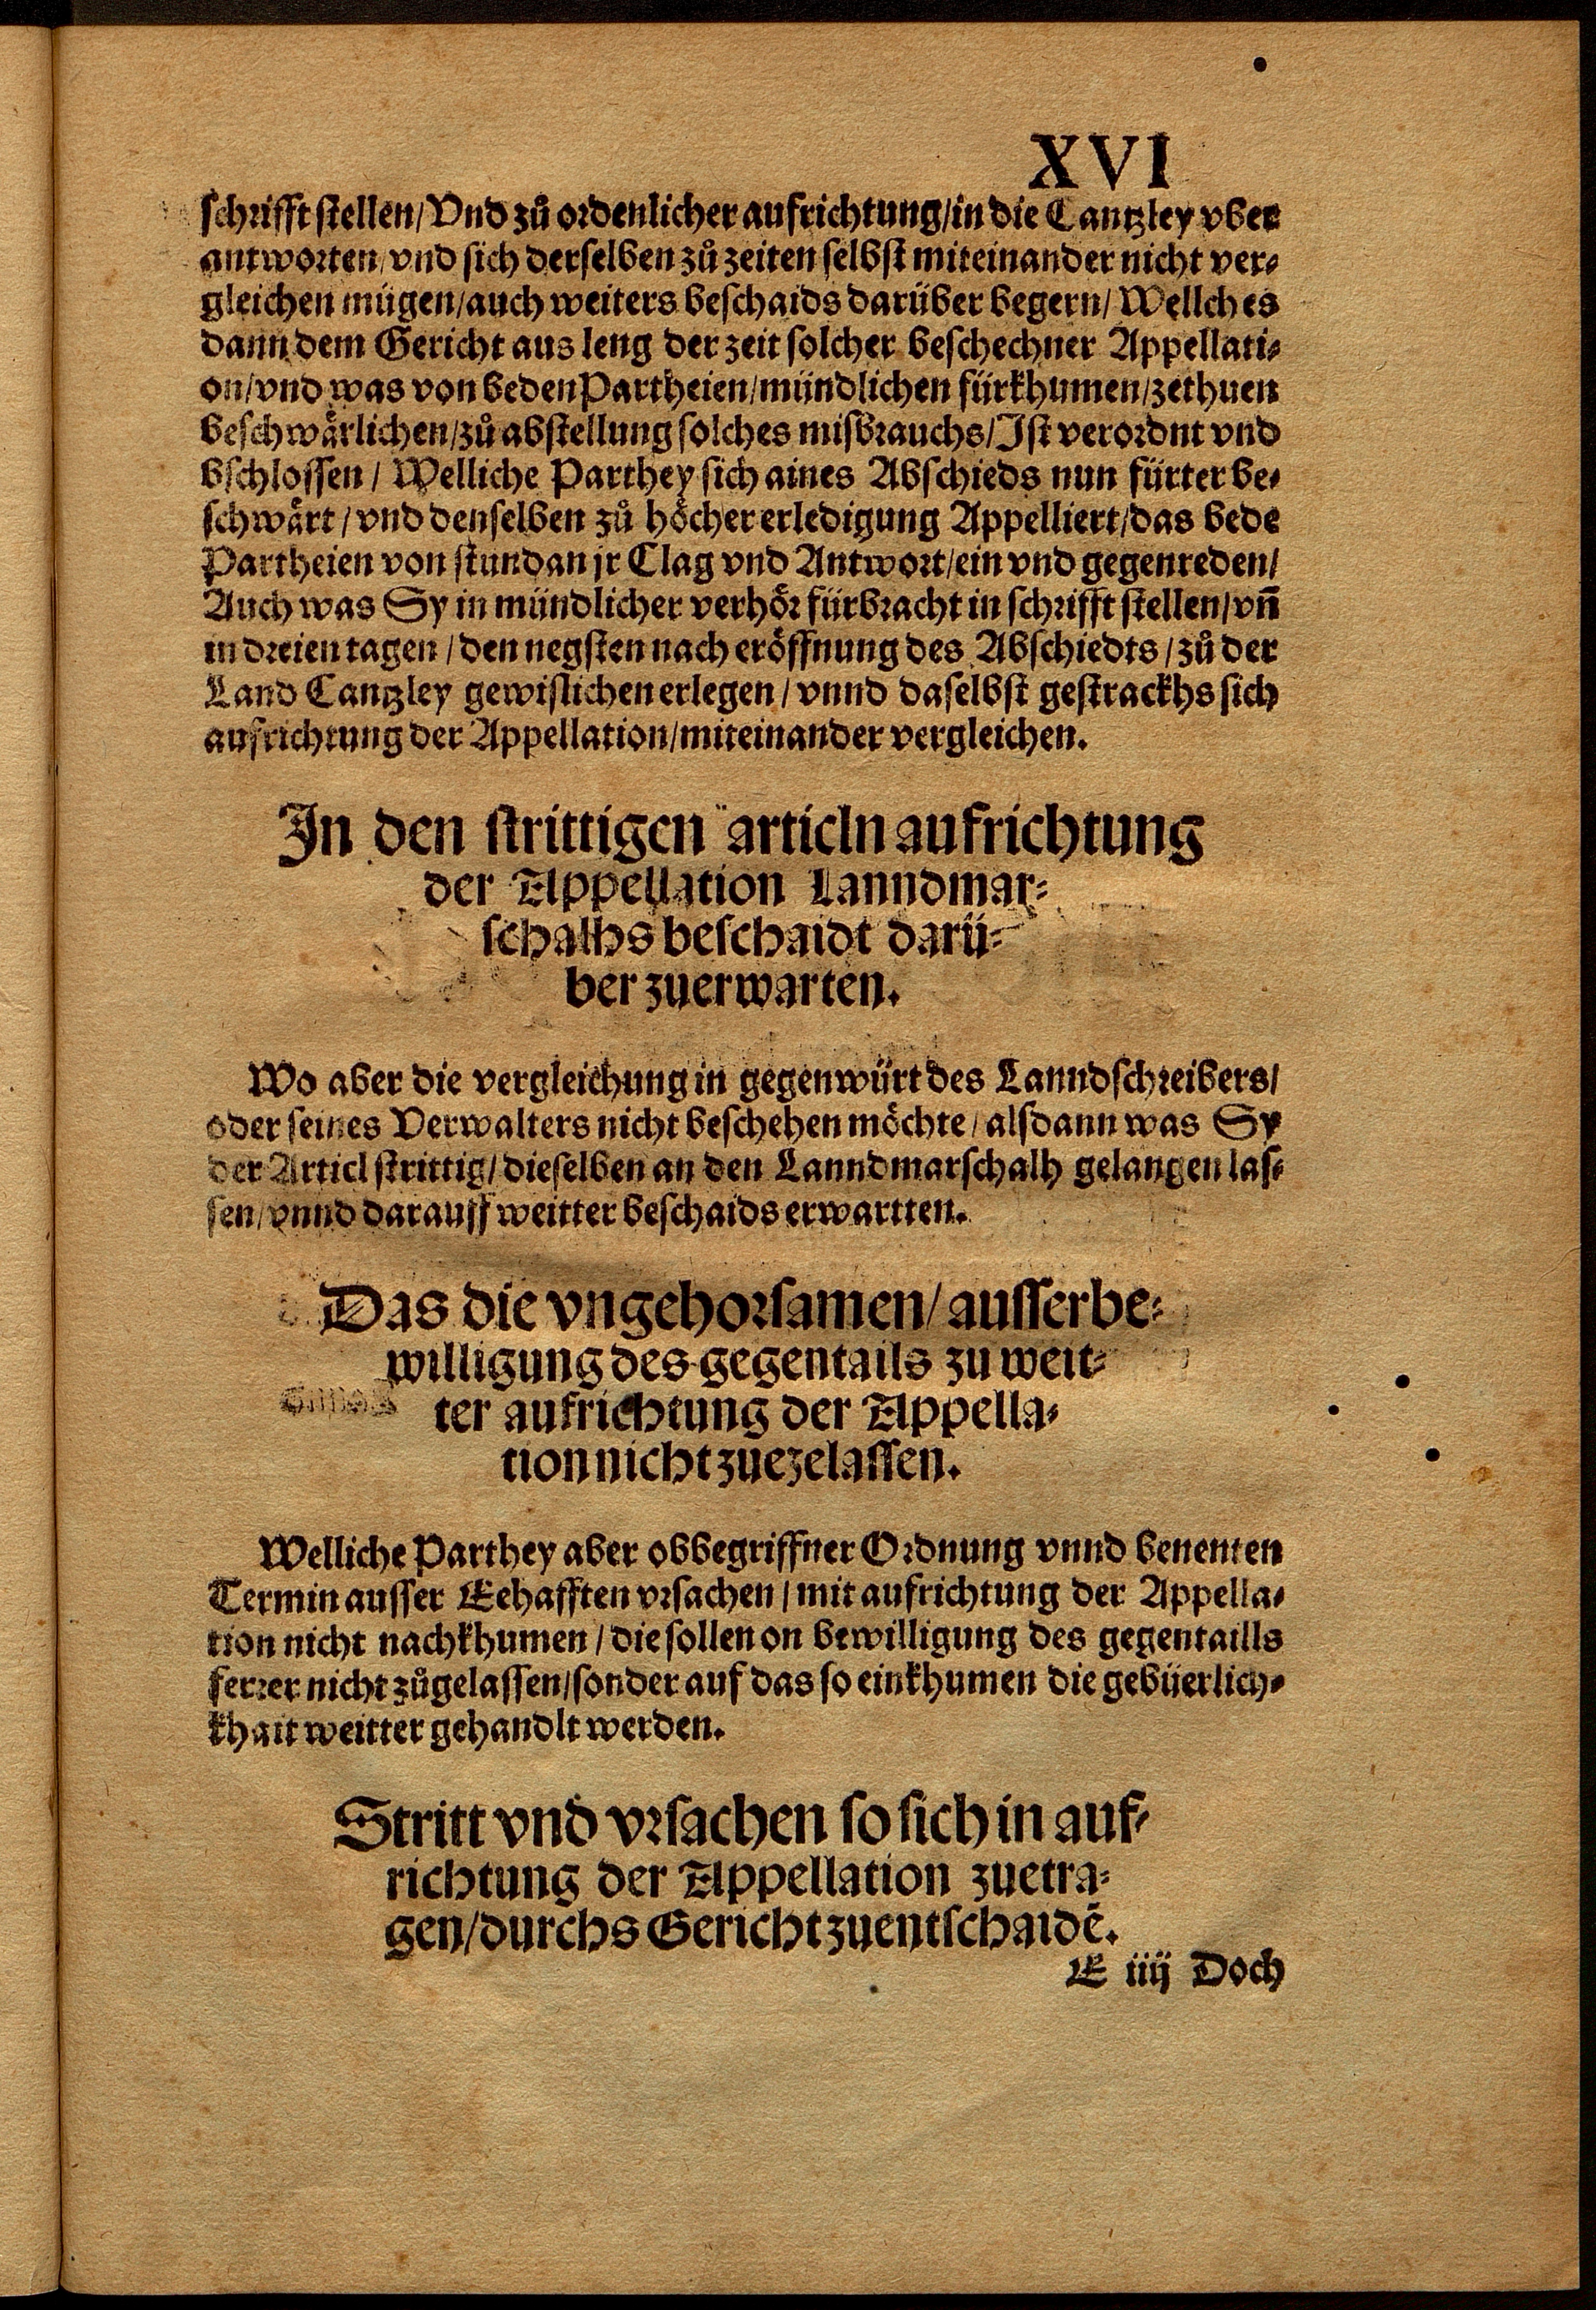 XVI
schrifft stellen/ Vnd zů ordenlicher aufrichtung/ in die Cantzley vber
antworten/ vnd sich derselben zů zeiten selbst miteinander nicht ver⸗
gleichen mügen/ auch weiters beschaids darüber begern/ Wellches
dann dem Gericht aus leng der zeit solcher beschechner Appellati⸗
on/ vnd was von beden Partheien/ mündlichen fürkhumen/ zethuen
beschwärlichen/ zů abstellung solches misbrauchs/ Ist verordnt vnd
bschlossen/ Welliche Parthey sich aines Abschieds nun fürter be⸗
schwärt/ vnd denselben zů höcher erledigung Appelliert/ das bede
Partheien von stundan jr Clag vnd Antwort/ ein vnd gegenreden/
Auch was Sy in mündlicher verhör fürbracht in schrifft stellen/ vñ
in dreien tagen/ den negsten nach eröffnung des Abschiedts/ zů der
Land Cantzley gewislichen erlegen/ vnnd daselbst gestrackhs sich
aufrichtung der Appellation/ miteinander vergleichen.
In den strittigen articln aufrichtung
der Appellation Lanndmar⸗
schalhs beschaidt darü⸗
ber zuerwarten.
Wo aber die vergleichung in gegenwürt des Lanndschreibers/
oder seines Verwalters nicht beschehen möchte/ alsdann was Sy
der Articl strittig/ dieselben an den Lanndmarschalh gelangen las⸗
sen/ vnnd darauff weitter beschaids erwartten.
Das die vngehorsamen/ ausserbe⸗
willigung des gegentails zu weit⸗
ter aufrichtung der Appella⸗
tion nicht zuezelassen.
Welliche Parthey aber obbegriffner Ordnung vnnd benenten
Termin ausser Eehafften vrsachen/ mit aufrichtung der Appella⸗
tion nicht nachkhumen/ die sollen on bewilligung des gegentaills
ferrer nicht zůgelassen/ sonder auf das so einkhumen die gebüerlich⸗
khait weitter gehandlt werden.
Stritt vnd vrsachen so sich in auf⸗
richtung der Appellation zuetra⸗
gen/ durchs Gericht zuentschaidẽ.
E iiij Doch